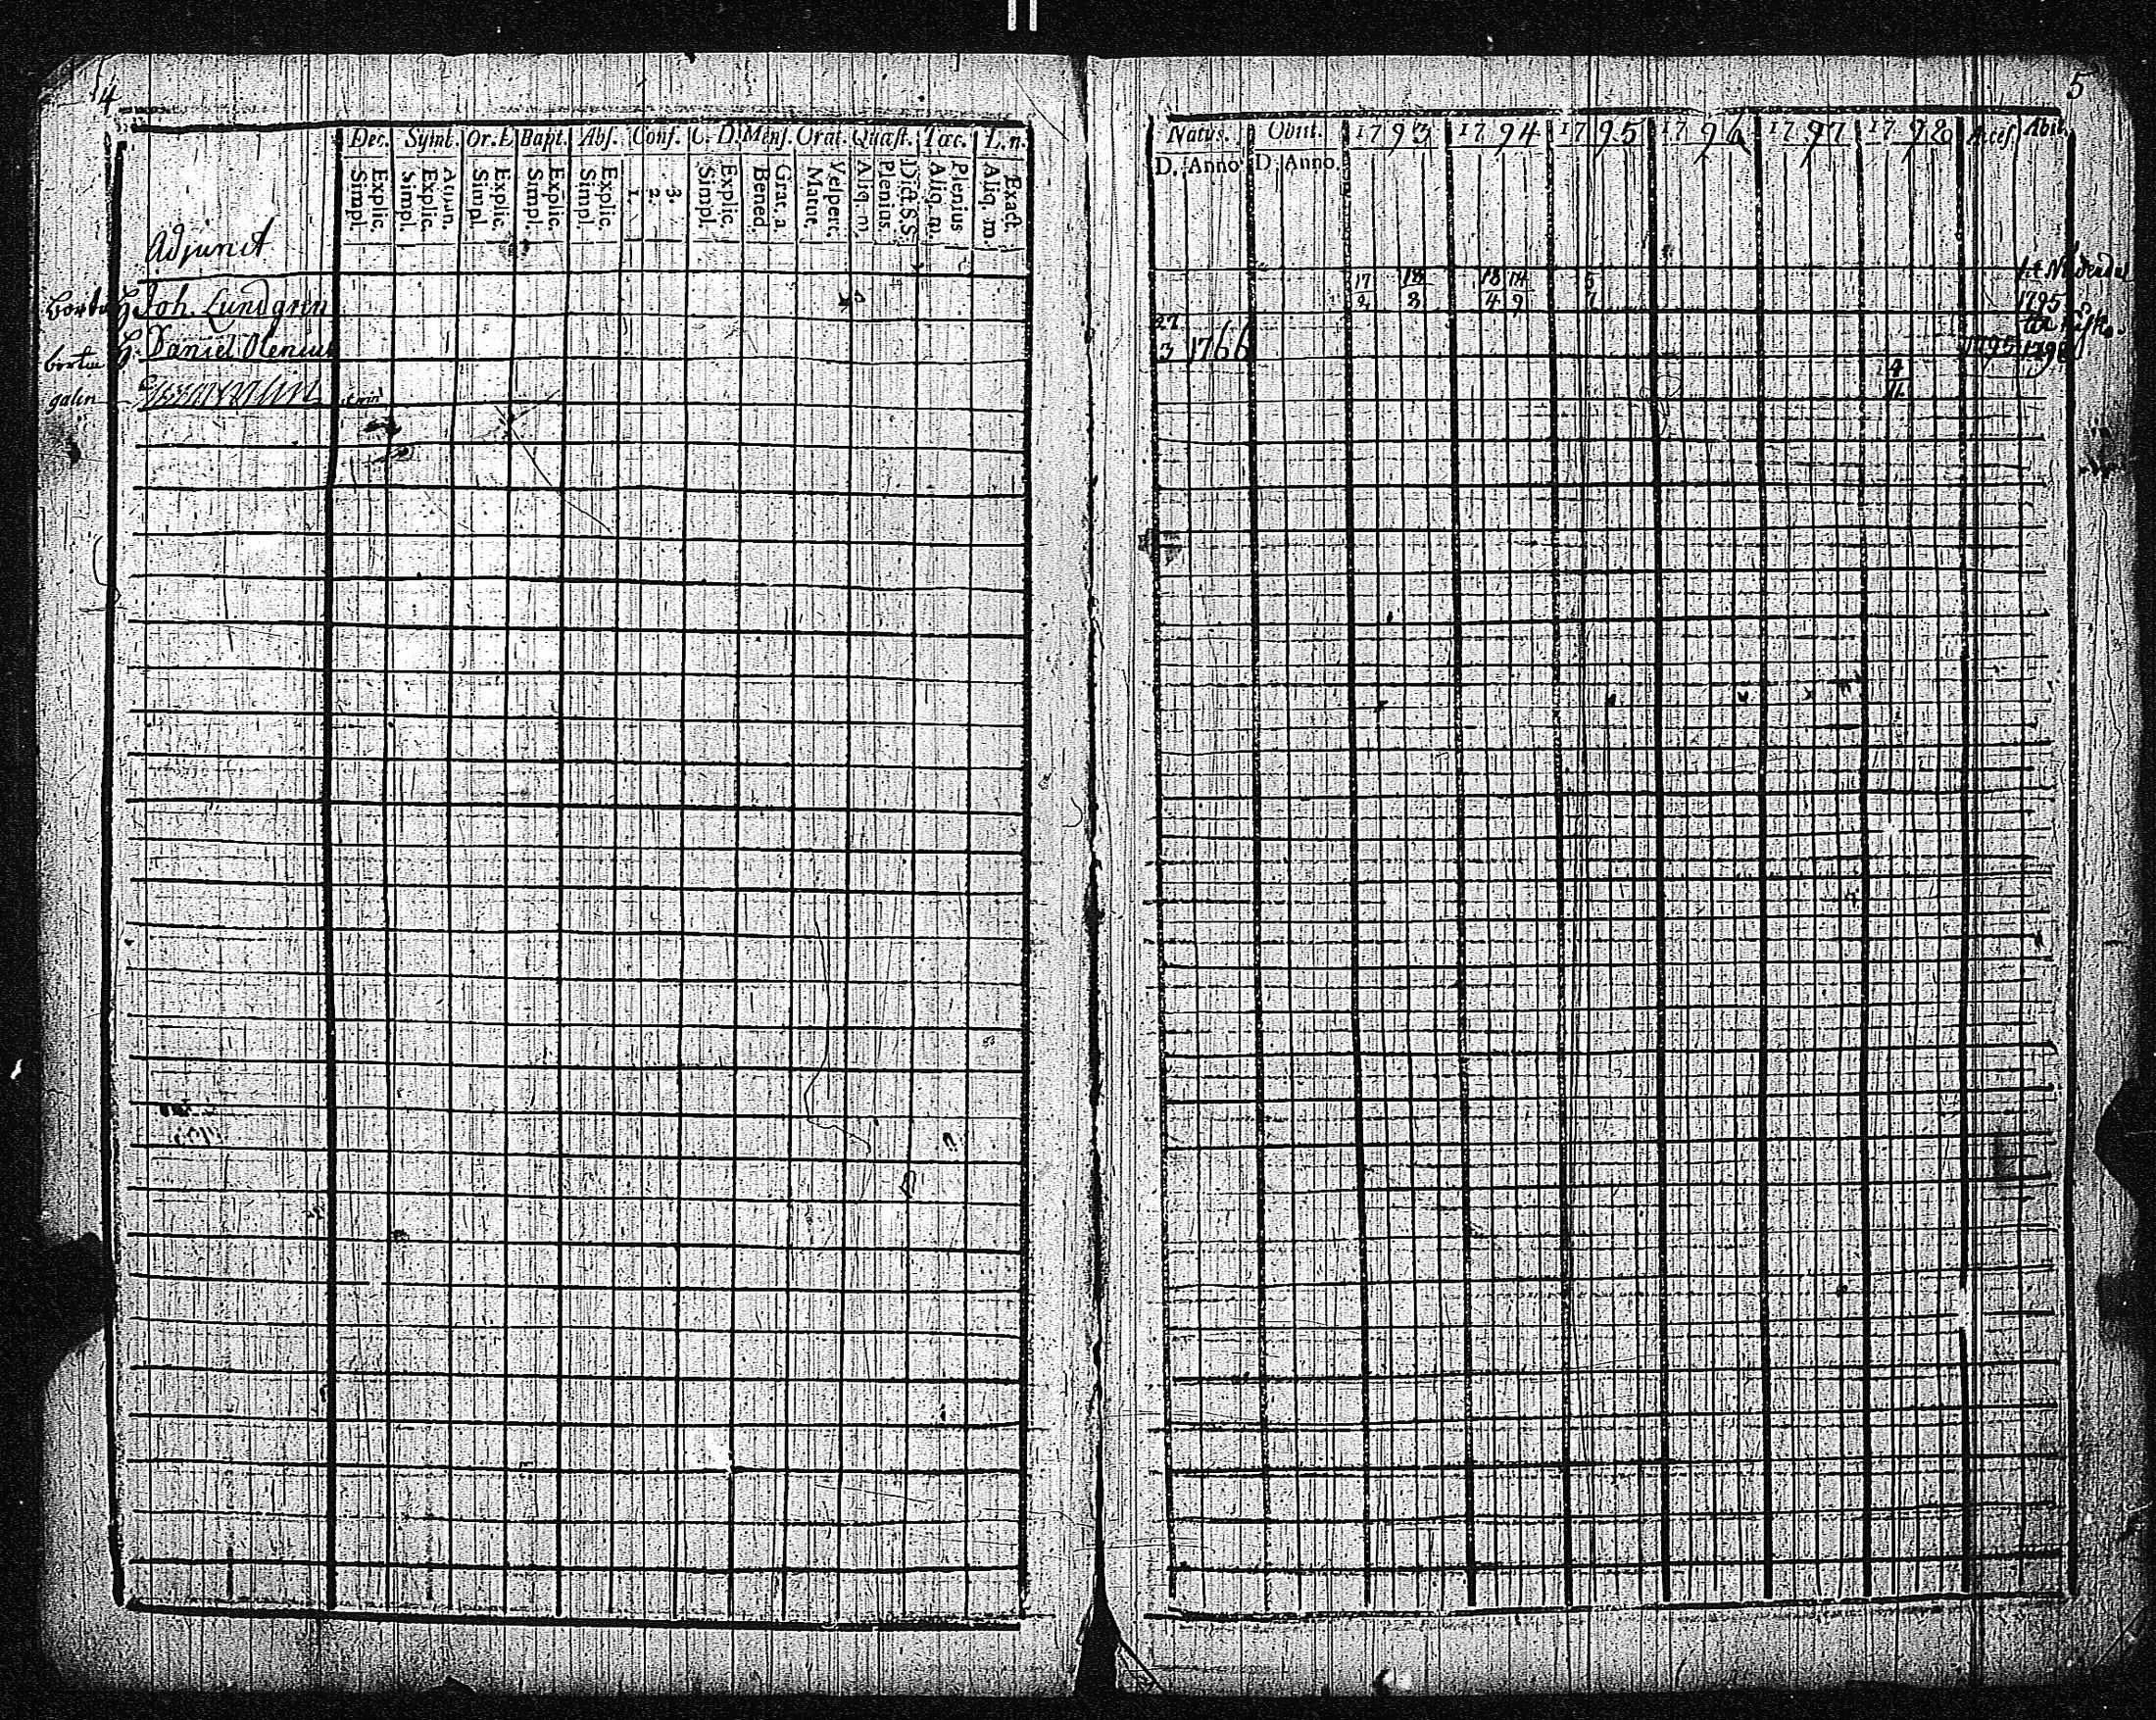 4
Dec. Symb. Or. D Bapt. Abs. Conf. C. D. Mens. Orat. Quæst. Tac. L. n.
Explic. Simpl. Explic. Simpl. Explic. Simpl. Explic. Simpl. Explic. Simpl. 1. 2. 3. Explic. Simpl. Grat. a. Bened. Vespert. Matut. Dict. S. S. Plenius. Aliq. m. Plenius Aliq. m. Exact. Aliq. m.
Adjunct
borta H. Joh. Lundgren
borta H. Daniel Olenius
galin
5
Natus. Obiit. 1793 1794 1795 1796 1797 1798 Acces. Abit.
D. Anno D. Anno.
17/2 18/3 18/4 14/9 5/7 1795
27/3 1766 1795 1796
4/11